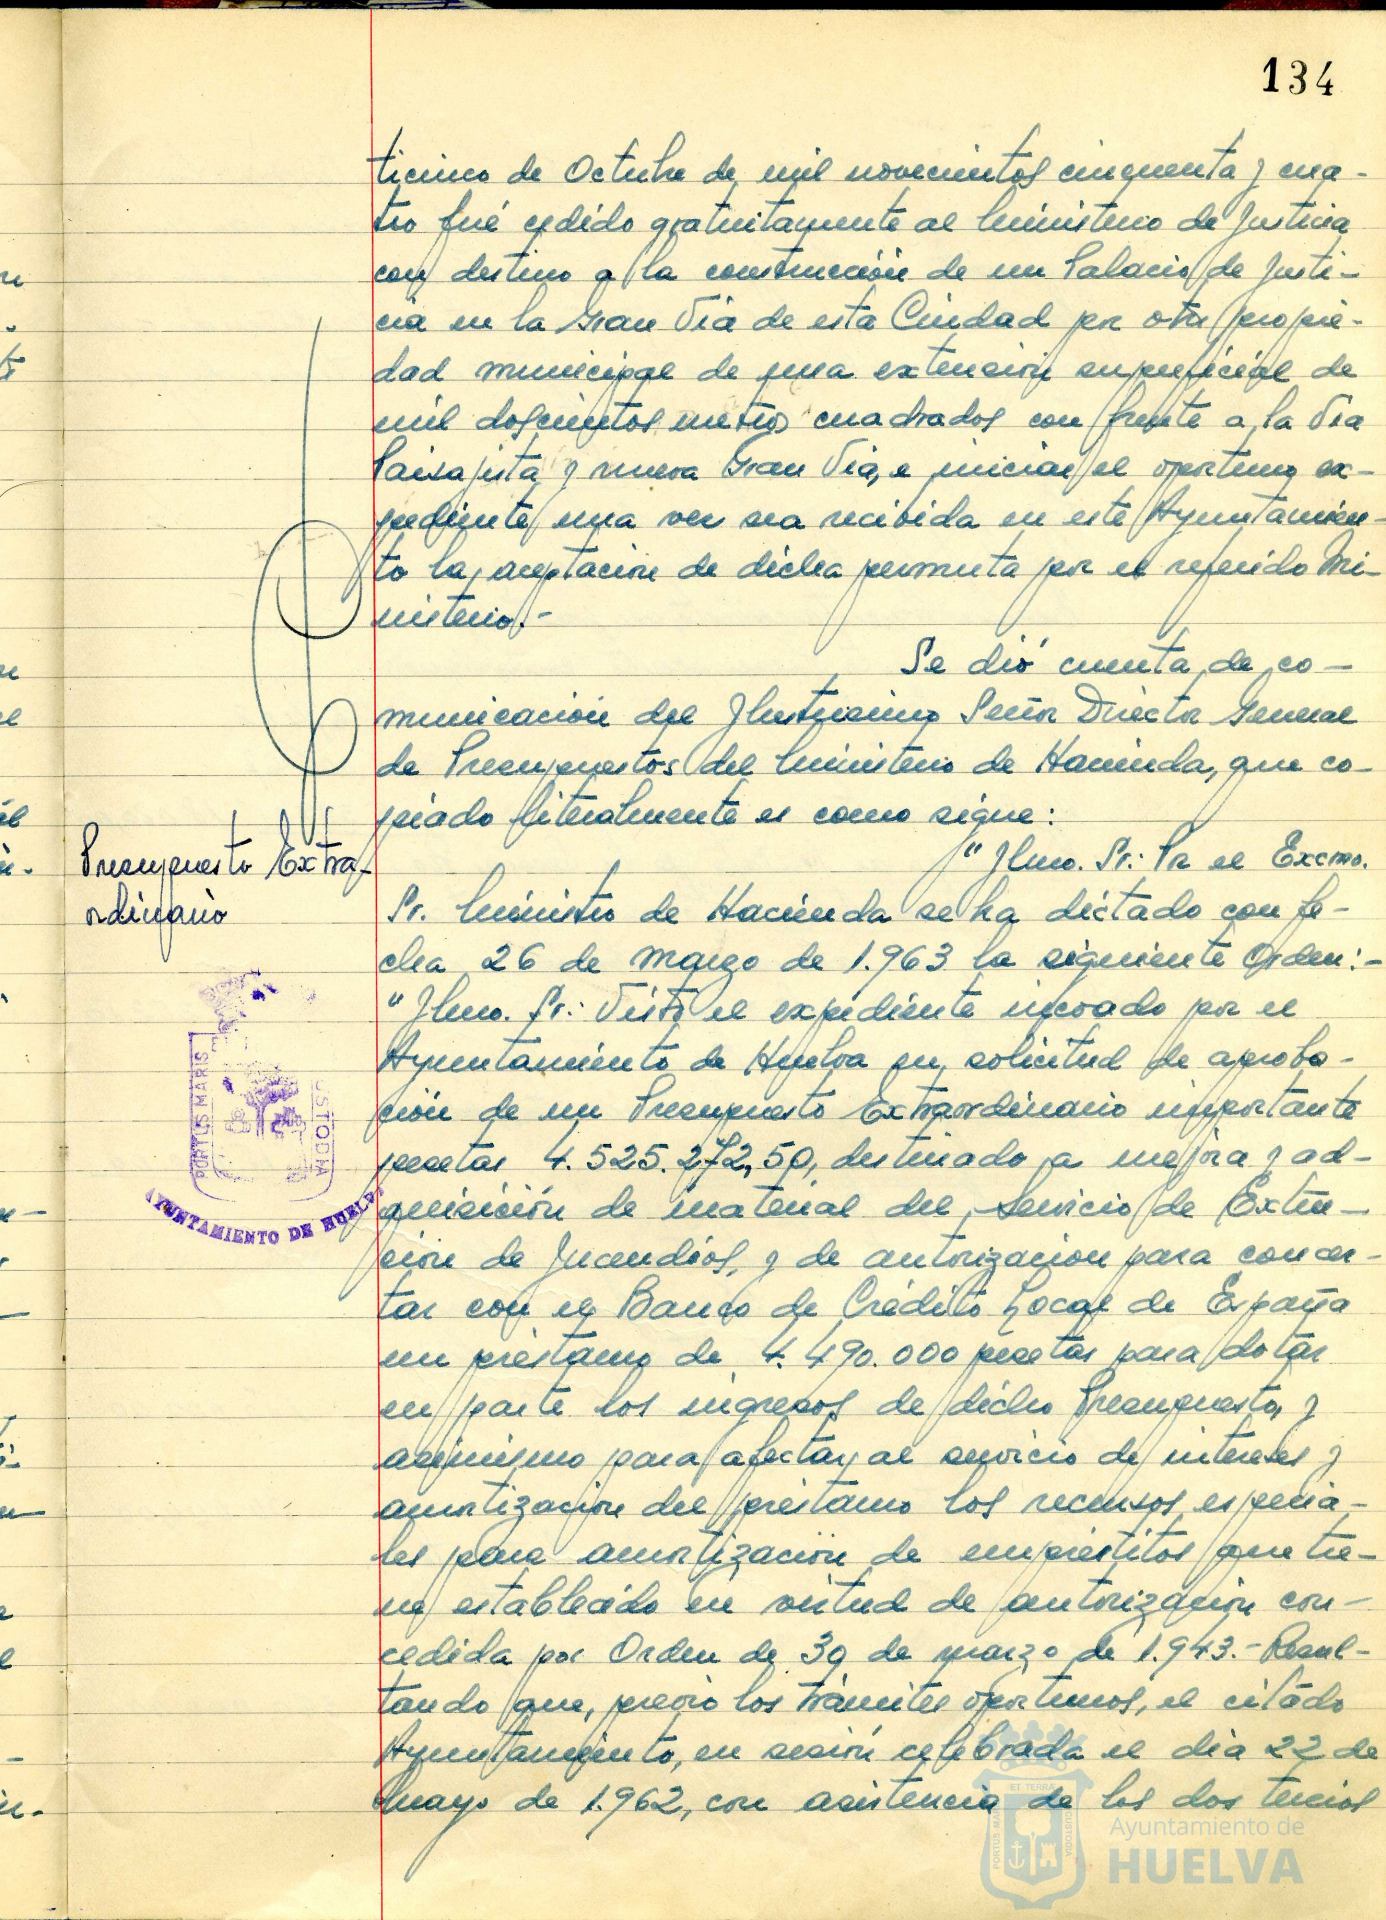 134
ticinco de Octubre de mil novecientos cincuenta y cua-
tro fué cedido gratuitamente al Ministerio de Justicia
con destino a la construcción de un Palacio de Justi-
cia en la Gran Vía de esta Ciudad por otra propie-
dad municipal de una extensión superficial de
mil doscientos metros cuadrados con frente a la Vía
Paisajista y nueva Gran Vía, e iniciar el oportuno ex-
pediente una vez sea recibida en este Ayuntamien-
to la aceptación de dicha permuta por el referido Mi-
nisterio.-
Se dió cuenta de co-
municación del Ilustrísimo Señor Director General
de Presupuestos del Ministerio de Hacienda, que co-
piado literalmente es como sigue:
Presupuesto Extra-
ordinario
"Ilmo. Sr.: Por el Excmo.
Sr. Ministro de Hacienda se ha dictado con fe-
cha 26 de marzo de 1.963 la siguiente Orden:-
"Ilmo. Sr.: Visto el expediente incoado por el
Ayuntamiento de Huelva en solicitud de aproba-
ción de un Presupuesto Extraordinario importante
pesetas 4.525.272,50, destinado a mejora y ad-
quisición de material del Servicio de Extin-
ción de Incendios, y de autorización para concer-
tar con el Banco de Crédito Local de España
un préstamo de 4.490.000 pesetas para dotar
en parte los ingresos de dicho Presupuesto, y
asimismo para afectar al servicio de intereses y
amortización del préstamo los recursos especia-
les para amortización de empréstitos que tie-
ne establecido en virtud de autorización con-
cedida por Orden de 30 de marzo de 1.943.- Resul-
tando que, previo los trámites oportunos, el citado
Ayuntamiento, en sesión celebrada el día 22 de
Mayo de 1.962, con asistencia de los dos tercios
PORTUS MARIS
CUSTODIA
AYUNTAMIENTO DE HUELVA
ET TERRAE
PORTUS MARIS
CUSTODIA
Ayuntamiento de
HUELVA